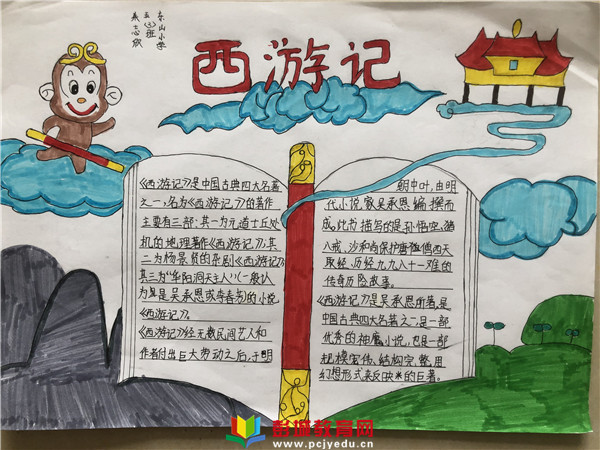 东山小学
班
西游记
《西游记》是中国古典四大名著
之一,名为《西游记》的著作
主要有三部:其一为元道士丘处
机的地理著作《西游记》,其
二为杨景贤的杂剧《西游记》
其三为"华阳洞天主人"(一般认
为是吴承恩或李春芳)的小说
《西游记》。
《西游记》经无数民间艺人和
作者付出巨大劳动之后,于明
朝中叶,由明
代小说家吴承恩编撰而
成。此书描写的是孙悟空、猪
八戒、沙和尚保护唐僧西天
取经、历经九九八十一难的
传奇历险故事。
《西游记》是吴承恩所著,是
中国古典四大名著之一,是一部
优秀的神魔小说,也是一部
规模宏伟、结构完整、用
幻想形式来反映*的巨著。
盘城教育网
www.pcjyedu.cn